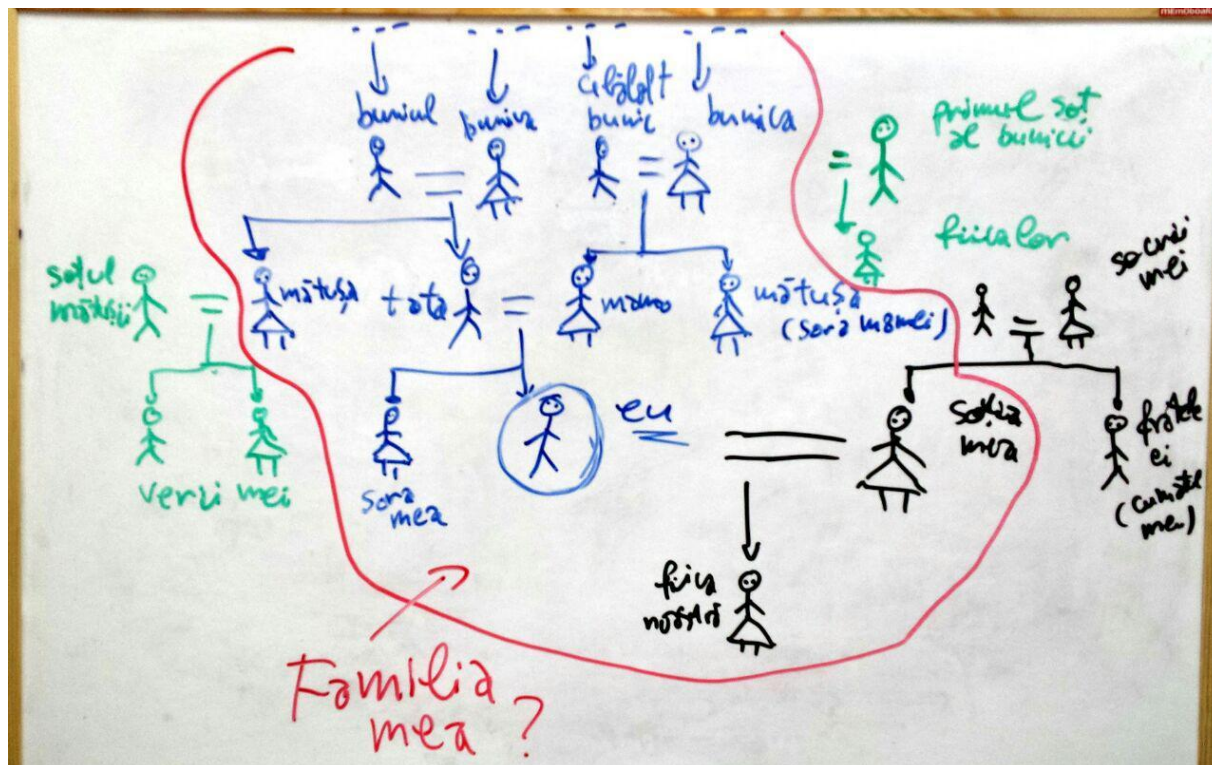 mEmOboards
bunicul
bunica
celălalt
bunic
bunica
primul soț
al bunicii
fiica lor
socrii
mei
soțul
mătușii
mătușa
tata
mama
mătușa
(sora mamei)
verii mei
sora
mea
eu
soția
mea
fratele
ei
(cumătul
meu)
fiica
noastră
Familia
mea?